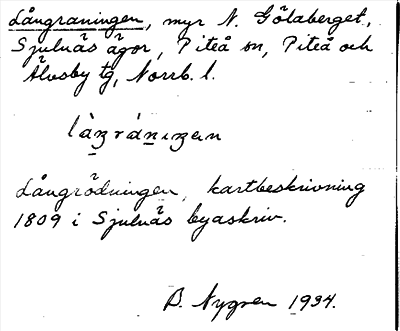 Långraningen, myr N. Götaberget,
Sjulnäs ägor, Piteå sn, Piteå och
Älvsby tg, Norrb. l.
Långrödningen, kartbeskrivning
1809 i Sjulnäs byaskriv.
B. Nygren 1934.